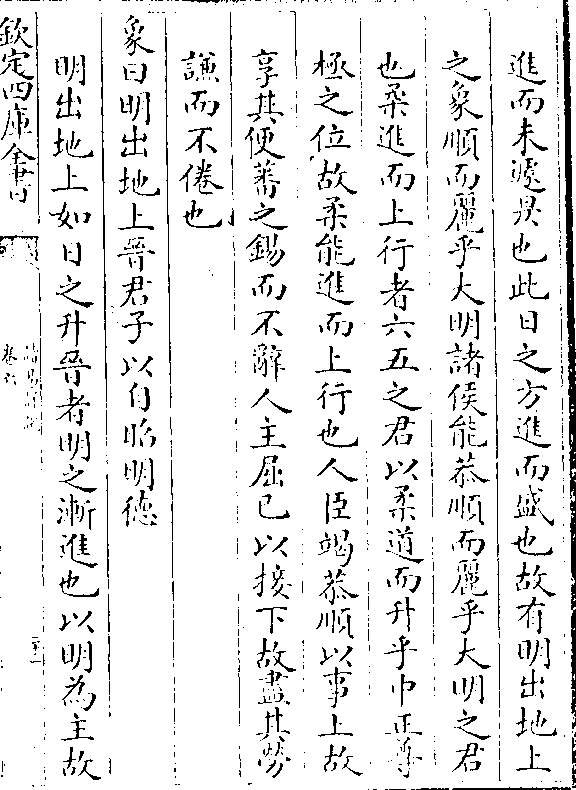 進而未遽昃也此日之方進而盛也故有明出地上
之象順而麗乎大明諸侯能恭順而麗乎大明之君
也柔進而上行者六五之君以柔道而升乎中正尊
極之位故柔能進而上行也人臣竭恭順以事上故
享其便蕃之錫而不辭人主屈已以接下故盡其勞
謙而不倦也
象曰明出地上晉君子以自昭明德
明出地上如日之升晉者明之漸進也以明為主故
欽定四庫全書
卷六